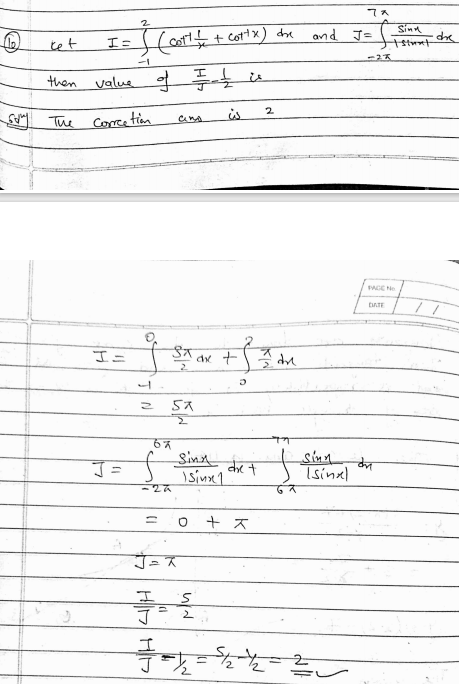 16 Let I = ∫_{-1}^{2} (cot⁻¹ 1/x + cot⁻¹x) dx and J = ∫_{-2π}^{7π} sinx/|sinx| dx
then value of I/J - 1/2 is
Solⁿ The corrcetion ans is 2
PAGE No
DATE / /
I = ∫_{-1}^{0} 3π/2 dx + ∫_{0}^{2} π/2 dx
= 5π/2
J = ∫_{-2π}^{6π} sinx/|sinx| dx + ∫_{6π}^{7π} sinx/|sinx| dx
= 0 + π
J = π
I/J = 5/2
I/J - 1/2 = 5/2 - 1/2 = 2 ✓